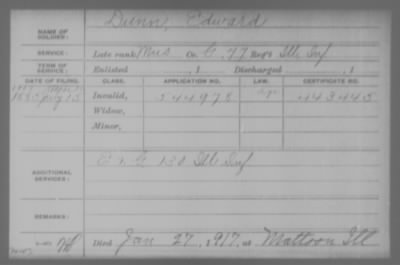 Dunn, Edward
NAME OF SOLDIER:
SERVICE: Late rank Mus Co. C, 77 Reg't Ill Inf
TERM OF SERVICE: Enlisted , 1 Discharged , 1
DATE OF FILING. CLASS. APPLICATION NO. LAW. CERTIFICATE NO.
1885 July 15 Invalid, 544978 443445
Widow,
Minor,
C 130 Ill Inf
ADDITIONAL SERVICES:
REMARKS:
Died Jan 27, 1917, at Mattoon Ill